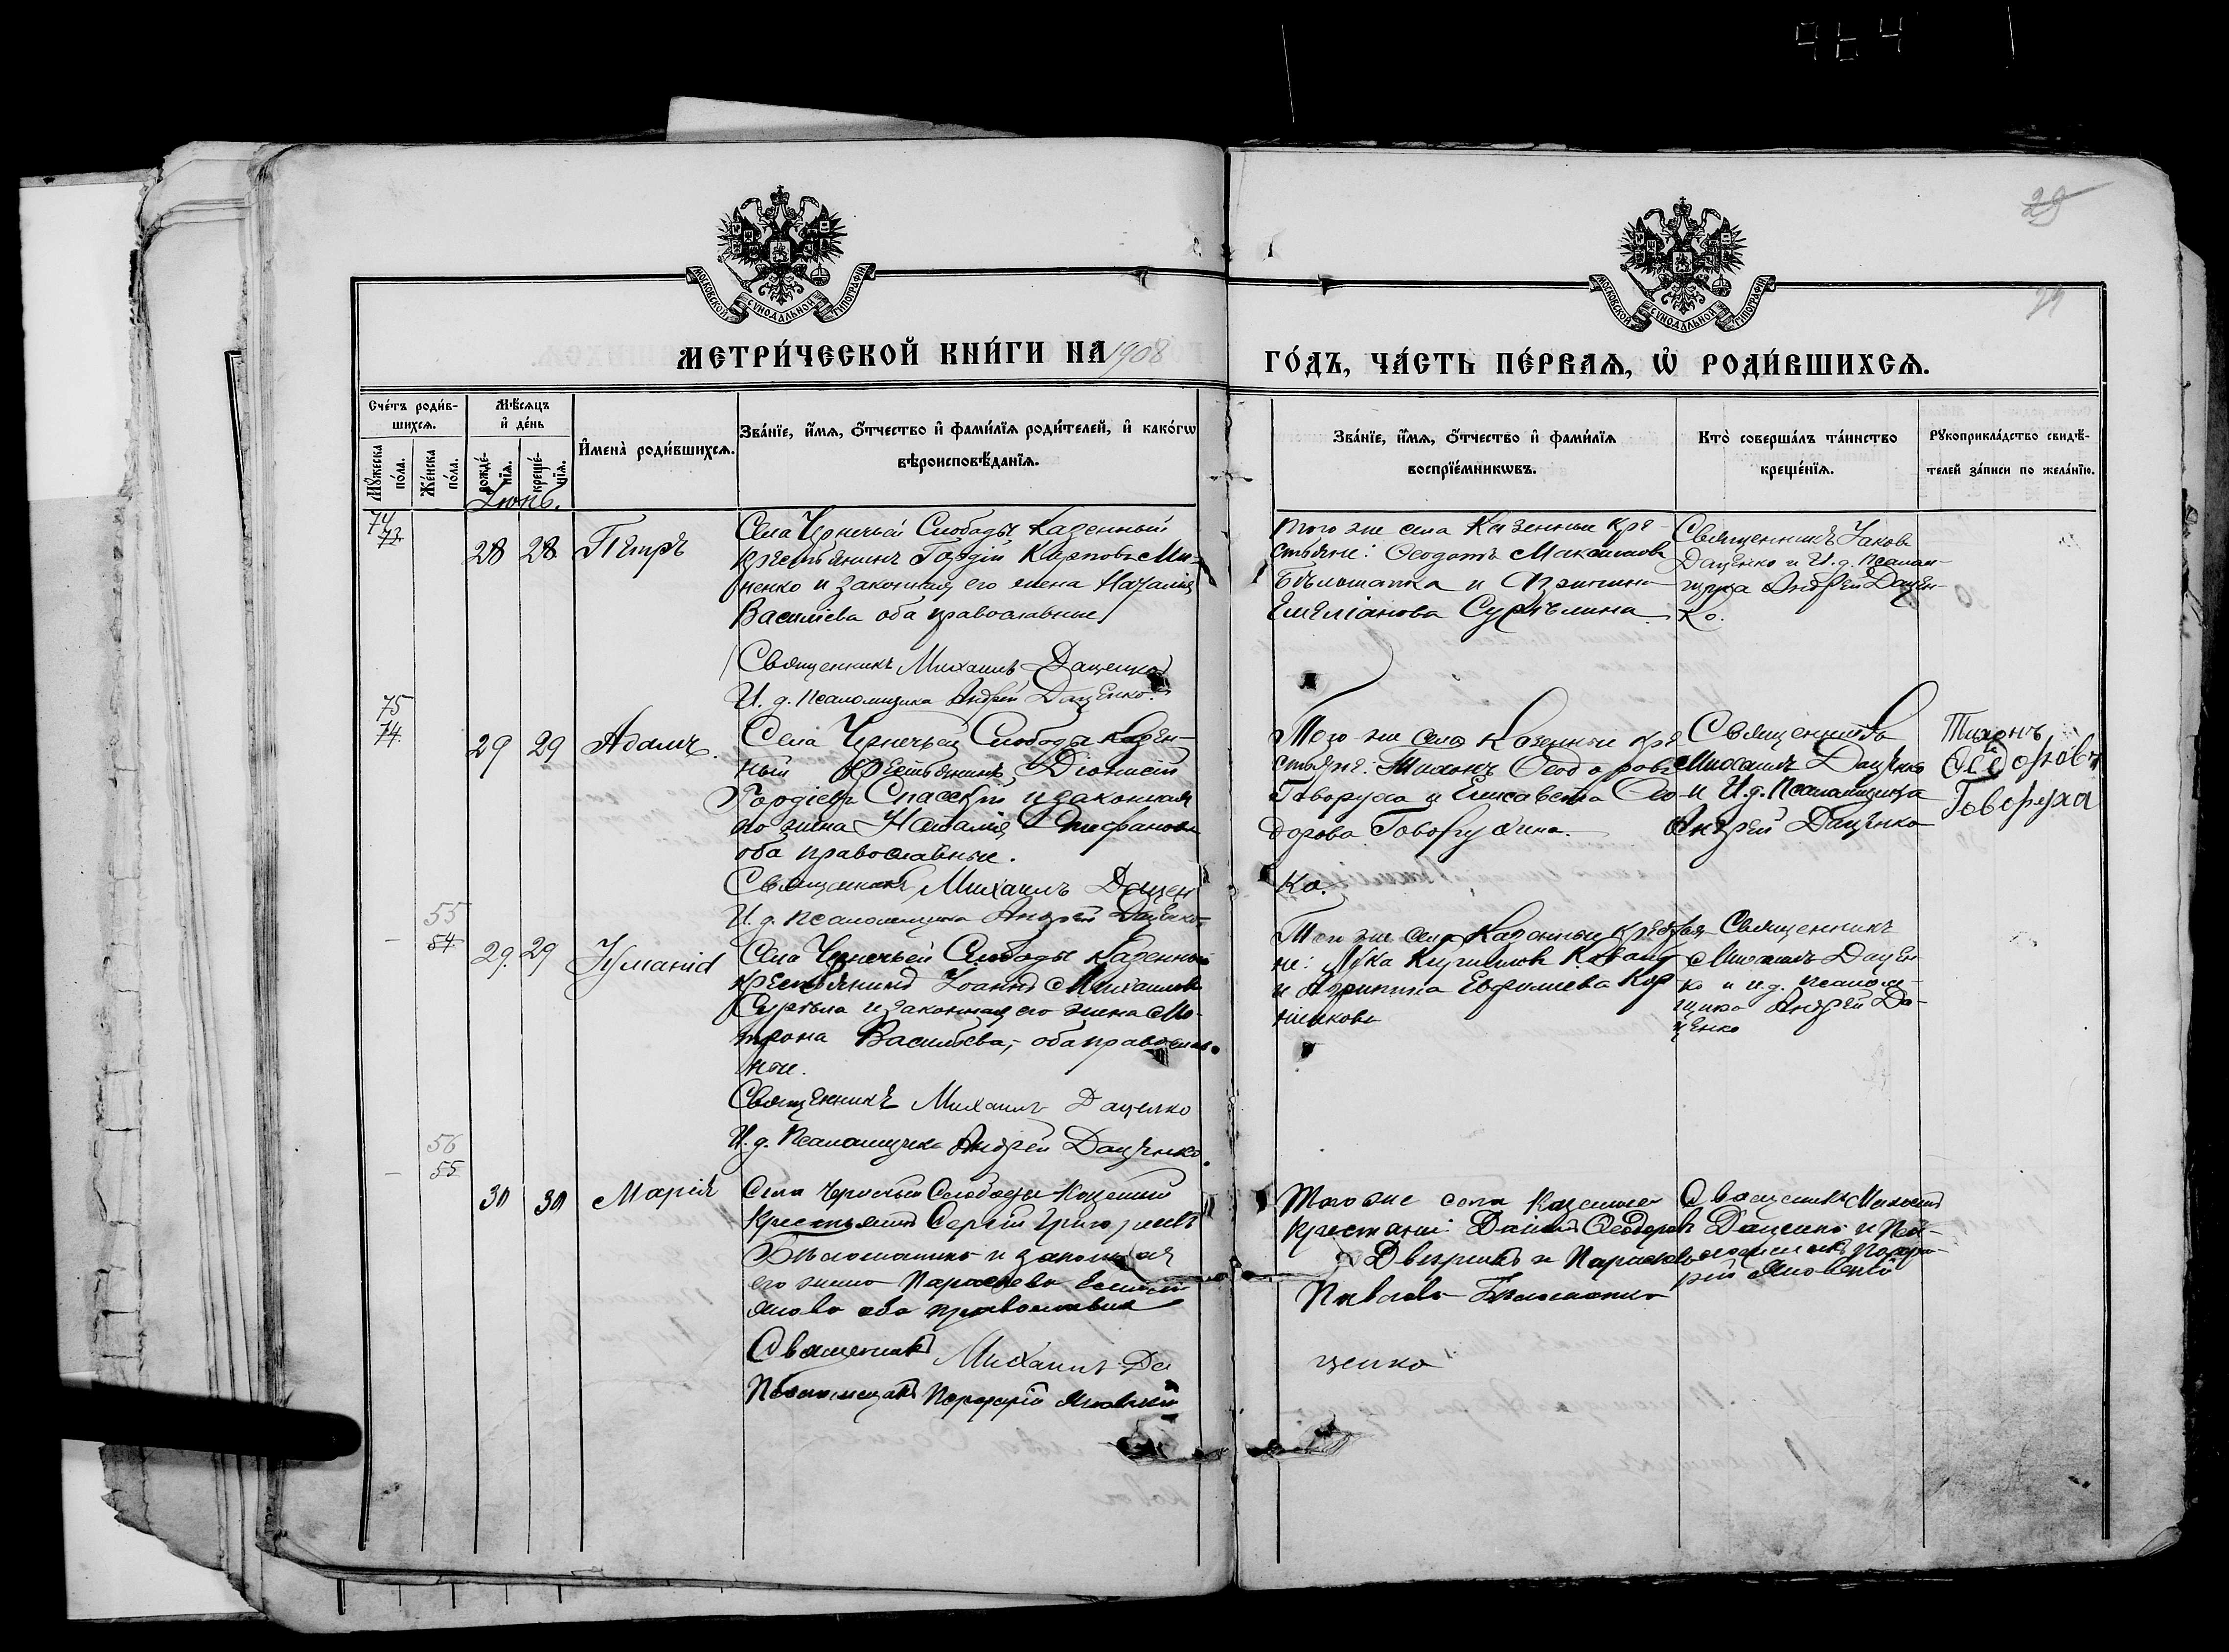 29
24
МОСКОВСКОЙ СУНОДАЛЬНОЙ ТИПОГРАФІИ
МОСКОВСКОЙ СУНОДАЛЬНОЙ ТИПОГРАФІИ
МЕТРИ́ЧЕСКОЙ КНИ́ГИ НА 1908 ГО́ДЪ, ЧА́СТЬ ПЕ́РВАѦ, Ѡ РОДИ́ВШИХСѦ.
Сче́тъ роди́в-
шихсѧ.
Мꙋ́жеска по́ла.
Же́нска по́ла.
Мѣ́сѧцъ
и҆ де́нь
рожде́-нїѧ.
креще́-нїѧ.
И҆мена̀ роди́вшихсѧ.
Зва́нїе, и҆́мѧ, ѻ҆́тчество и҆ фами́лїѧ роди́телей, и҆ како́гѡ
вѣроисповѣ́данїѧ.
Зва́нїе, и҆́мѧ, ѻ҆́тчество и҆ фами́лїѧ
воспрїе́мникѡвъ.
Кто̀ соверша́лъ та́инство
креще́нїѧ.
Рꙋкоприкла́дство свидѣ́-
телей за́писи по жела́нїю.
Іюнь.
74
73
28 28 Петръ
Села Чернечьей Слободы казенный
крестьянинъ Гордій Карповъ Ми-
ненко и законная его жена Наталія
Василіева оба православные
Священникъ Михаилъ Даценко
И. д. Псаломщика Андрей Даценко.
Того же села Казенные кре-
стьяне: Ѳеодотъ Максимовъ
Бѣлошапка и
Емеліанова Сурѣлина
Священникъ Іаковъ
Даценко и И. д. Псалом-
щика Андрей Дацен-
ко.
75
74
29 29 Адамъ
Села Чернечьей Слободы казен-
ный крестьянинъ Діонисій
Гордіевъ Спасскій и законная
его жена Наталія Стефанова
оба православные.
Священникъ Михаилъ Дацен
ко.
И. д. Псаломщика Андрей Даценко
Того же села Казенные кре
стьяне: Тихонъ Ѳеодоровъ
Говоруха и Елисавета Ѳео
дорова Говорухина.
Священникъ
Михаилъ Даценко
и И. д. Псаломщика
Андрей Даценко
Тихонъ
Ѳедоровъ
Говоруха
55
54
29 29 Іуліанія
Села Чернечьей Слободы Казенный
крестьянинъ Іоаннъ Михаиловъ
Сурѣла и законная его жена Ма-
трона Васильева, оба православ-
ные.
Священникъ Михаилъ Даценко
И. д. Псаломщика Андрей Даценко.
Того же села Казенные крестья-
не: Лука Кирилловъ
и Агрипина Евфиміева
Священникъ
Михаилъ Дацен
ко и и. д. псалом-
щика Андрей Да-
ценко
56
55
30 30 Марія
Села Чернечьей Слободы Казенный
крестьянинъ Сергій Григоріевъ
Бѣлошапка и законная
его жена Параскева
оба православные
Священникъ Михаилъ Да
ценко
Псаломщикъ Порфирій
Того же села Казенные
крестьяне: Даніилъ Ѳеодоровъ
и Параскева
Павлова Бѣлошапка
Священникъ Михаилъ
Даценко и Пса-
ломщикъ Порфи-
рій